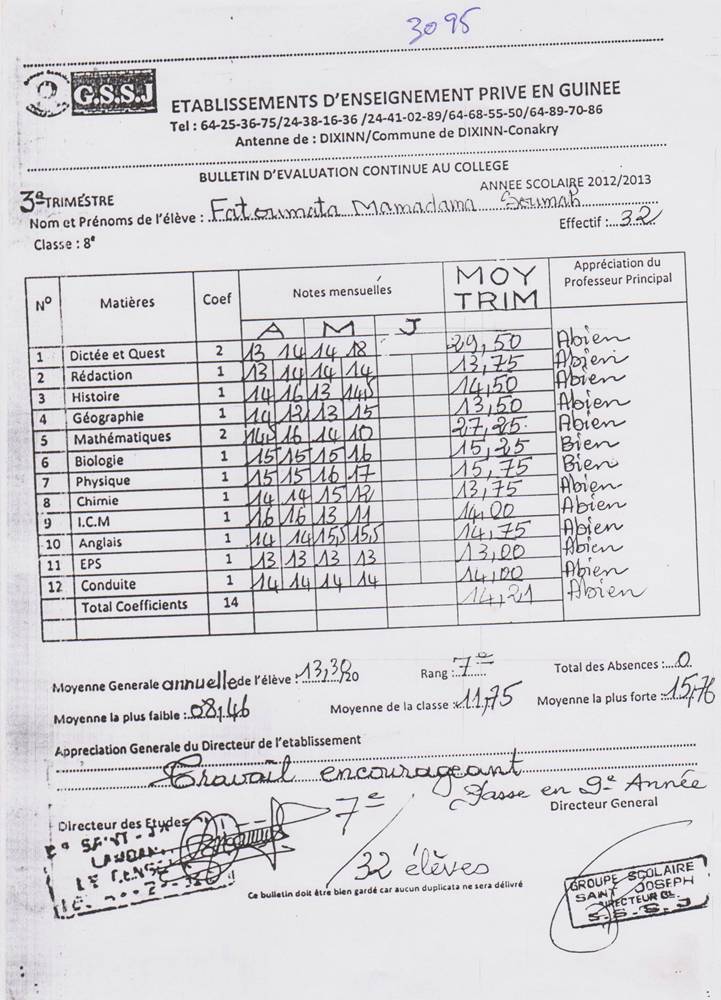 3095
G.S.S.J
ETABLISSEMENTS D'ENSEIGNEMENT PRIVE EN GUINEE
Tel : 64-25-36-75/24-38-16-36 /24-41-02-89/64-68-55-50/64-89-70-86
Antenne de : DIXINN/Commune de DIXINN-Conakry
BULLETIN D'EVALUATION CONTINUE AU COLLEGE
3e TRIMESTRE ANNEE SCOLAIRE 2012/2013
Nom et Prénoms de l'élève : Fatoumata Mamadama Soumah Effectif : 32
Classe : 8e
N° Matières Coef Notes mensuelles MOY TRIM Appréciation du Professeur Principal
A M J
1 Dictée et Quest 2 13 14 14 18 29,50 Abien
2 Rédaction 1 13 14 14 14 13,75 Abien
3 Histoire 1 14 16 13 14,5 14,50 Abien
4 Géographie 1 14 12 13 15 13,50 Abien
5 Mathématiques 2 14,5 16 14 10 27,25 Abien
6 Biologie 1 15 15 15 16 15,25 Bien
7 Physique 1 15 15 16 17 15,75 Bien
8 Chimie 1 14 14 15 12 13,75 Abien
9 I.C.M 1 16 16 13 11 14,00 Abien
10 Anglais 1 14 14 15,5 15,5 14,75 Abien
11 EPS 1 13 13 13 13 13,00 Abien
12 Conduite 1 14 14 14 14 14,00 Abien
Total Coefficients 14 14,21 Abien
Moyenne Generale annuelle de l'élève : 13,30/20 Rang : 7e Total des Absences : 0
Moyenne la plus faible : 08,46 Moyenne de la classe : 11,75 Moyenne la plus forte : 15,76
Appreciation Generale du Directeur de l'etablissement
Travail encourageant
Passe en 9e Année
Directeur des Etudes 7e Directeur General
/32 élèves
Ce bulletin doit être bien gardé car aucun duplicata ne sera délivré
GROUPE SCOLAIRE
SAINT JOSEPH
DIRECTEUR
G.S.S.J